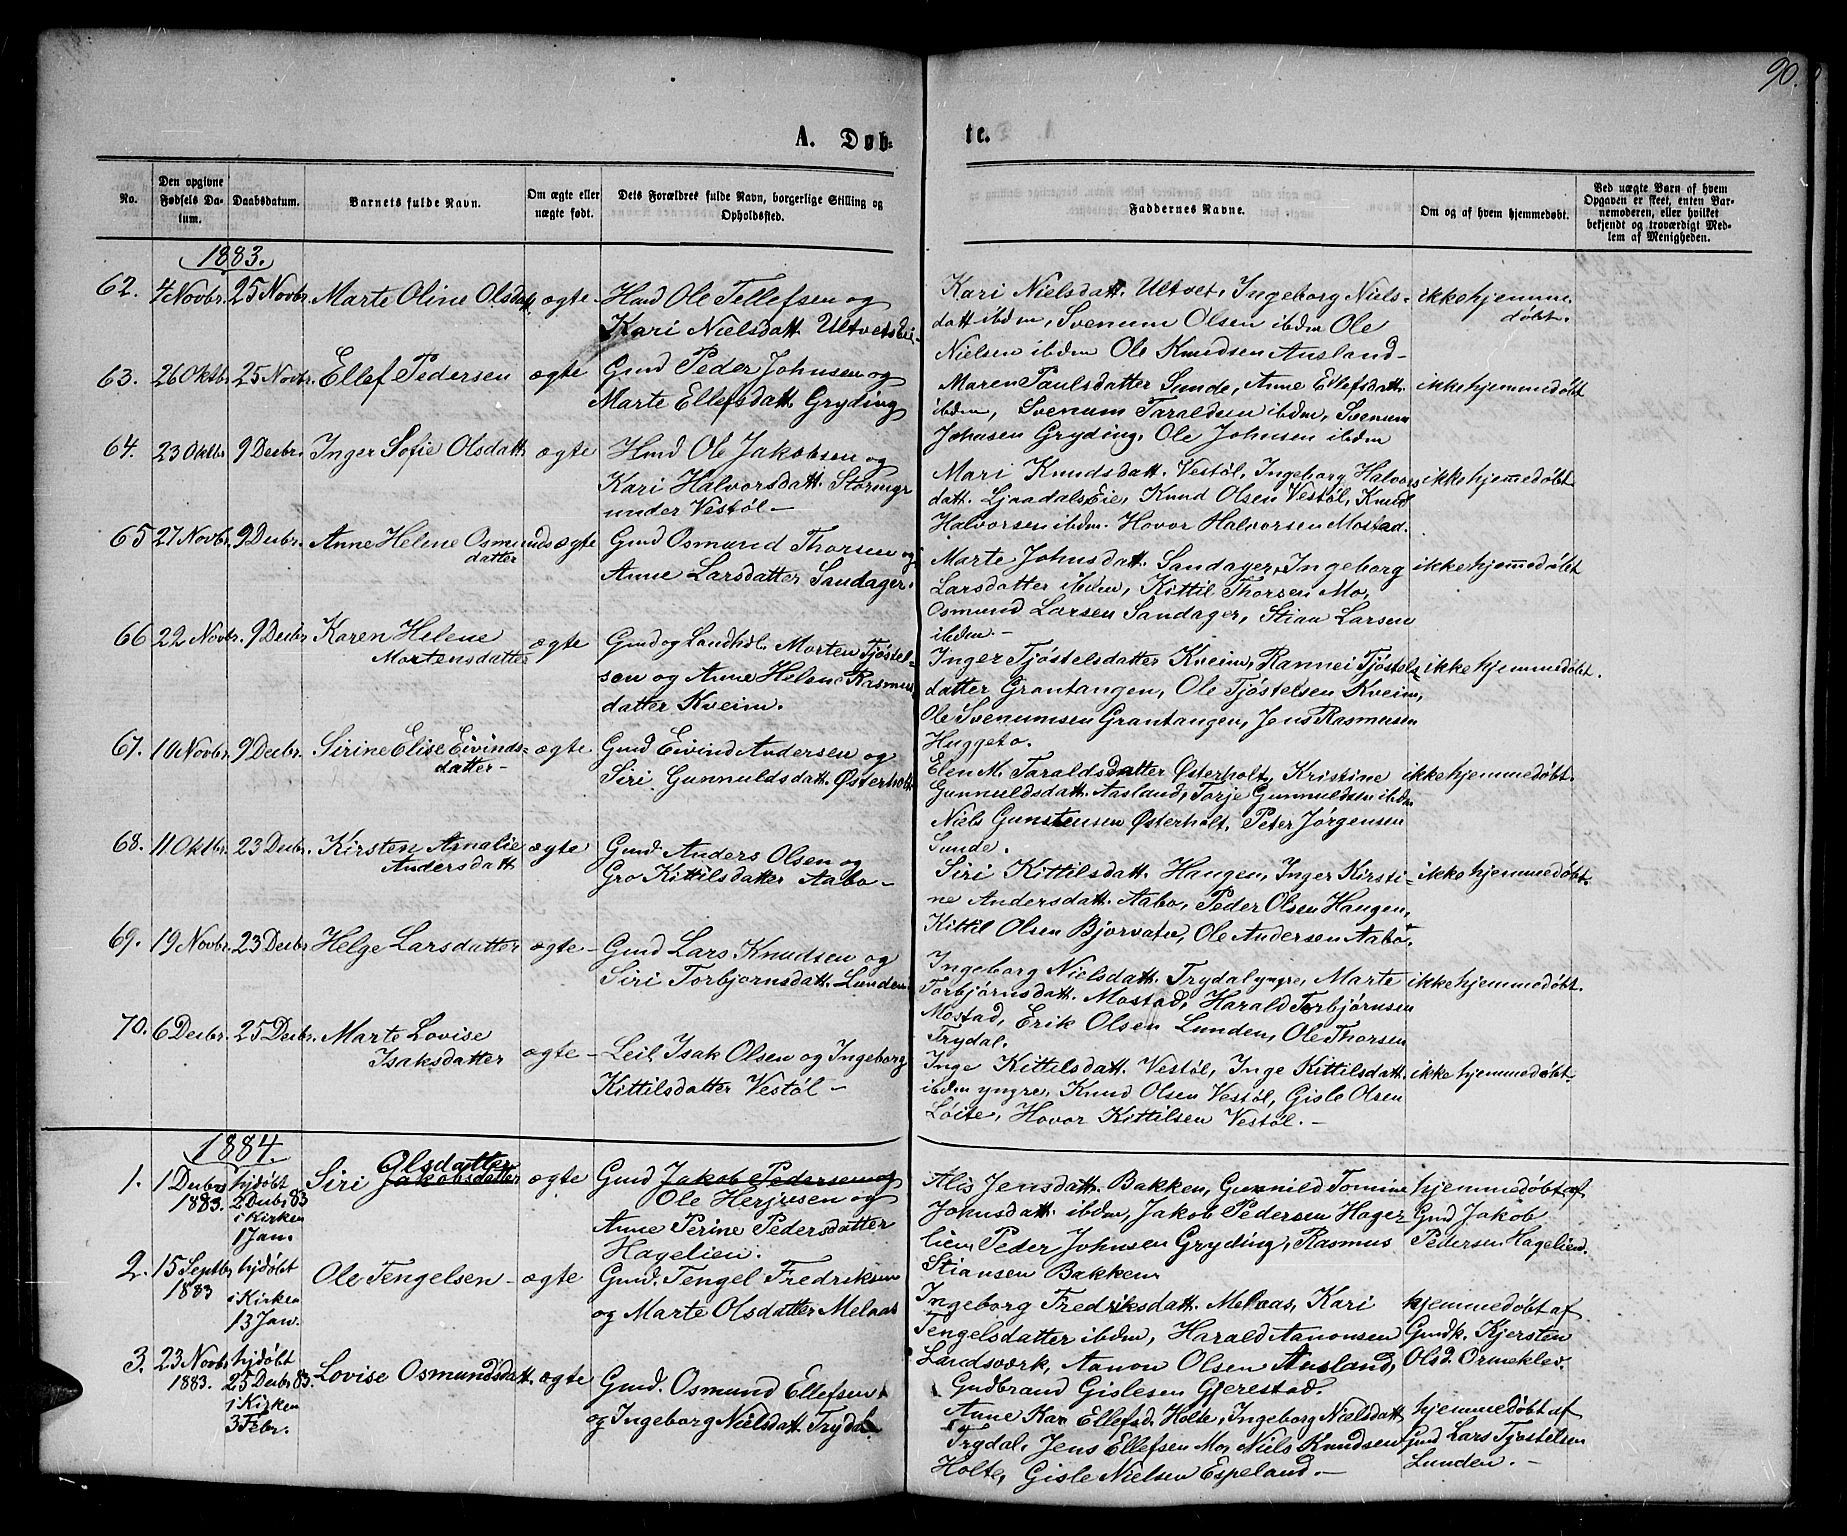 90.
A. Døb-
te.
No.
Den opgivne Fødsels Da-
tum.
Daabsdatum.
Barnets fulde Navn.
Om ægte eller
uægte født.
Dets Forældres fulde Navn, borgerlige Stilling og
Opholdssted.
Faddernes Navne.
Om og af hvem hjemmedøbt.
Ved uægte Børn af hvem
Opgaven er skeet, enten Bar-
nemoderen, eller hvilket
bekjendt og troværdigt Med-
lem af Menigheden.
1883.
62. 4 Novbr. 25 Novbr. Marte Oline Olsdatt. ægte
Hmd Ole Tellefsen og
Kari Nielsdatt. Ultvets Eie
Kari Nielsdatt. Ultvet, Ingeborg Niels-
datt ibdm, Svenum Olsen ibdm Ole
Nielsen ibdm Ole Knudsen Ausland-
ikke hjemme
døbt.
63. 26 Oktbr. 25 Novbr. Ellef Pedersen ægte
Gmd Peder Johnsen og
Marte Ellefsdatt. Gryding
Maren Paulsdatter Sunde, Anne Ellefsdatt.
ibdm, Svenum Taraldsen ibdm, Svenum
Johnsen Gryding, Ole Johnsen ibdm
ikke hjemmedøbt
64. 23 Oktbr 9 Decbr. Inger Sofie Olsdatt. ægte
Hmd Ole Jakobsen og
Kari Halvorsdatt. Stormyr
under Vestøl-
Mari Knudsdatt. Vestøl, Ingeborg Halvors
datt. Ljaadals Eie, Knud Olsen Vestøl, Knud
Halvorsen ibdm. Hovor Halvorsen Mostad.
ikke hjemedøbt
65 27 Novbr. 9 Decbr. Anne Helene Osmunds ægte
datter
Gmd Osmund Thorsen og
Anne Larsdatter Sandager.
Marte Johnsdatt. Sandager, Ingeborg
Larsdatter ibdm, Kittil Thorsen Mo,
Osmund Larsen Sandager, Stian Larsen
ibdm.-
ikke hjemedøbt
66 22 Novbr. 9 Decbr. Karen Helene
Mortensdatter ægte
Gmd og Landhdl. Morten Tjøstel-
sen og Anne Helene Rasmus
datter Kveim.
Inger Tjøstelsdatter Kveim, Rannei Tjøstels
datter Grantangen, Ole Tjøstelsen Kveim,
Ole Svenumsen Grantangen, Jens Rasmusen
Huggeto.
ikke hjemmedøbt.
67. 10 Novbr. 9 Decbr. Sirine Elise Eivinds- ægte
datter-
Gmd Eivind Andersen og
Siri Gunnuldsdatt. Østerholt
Elen M. Taraldsdatter Østerholt, Kristine
Gunnuldsdatt. Aasland, Torje Gunnuldsen ibdm
Niels Gunstensen Østerholt, Peter Jørgensen
Sunde.
ikke hjemmedøbt.
68. 11 Oktbr. 23 Decbr. Kirsten Amalie ægte
Andersdatt
Gmd. Anders Olsen og
Gro Kittilsdatter Aabo-
Siri Kittilsdatt. Haugen, Inger Kirsti-
ne Andersdatt. Aabo, Peder Olsen Haugen,
Kittil Olsen Bjorvatn, Ole Andersen Aabo.
ikke hjemmedøbt.
69. 19 Novbr. 23 Decbr. Helge Larsdatter ægte-
Gmd Lars Knudsen og
Siri Torbjørnsdatt. Lunden
Ingeborg Nielsdatt. Trydal yngre, Marte
Torbjørnsdatt. Mostad, Harald Torbjørnsen
Mostad, Erik Olsen Lunden, Ole Thorsen
Trydal.
ikke hjemmedøbt.
70. 6 Decbr. 25 Decbr. Marte Lovise
Isaksdatter ægte-
Leil. Isak Olsen og Ingeborg
Kittilsdatter Vestøl-
Inge Kittilsdatt. Vestøl, Inge Kittilsdatt.
ibdm yngre, Knud Olsen Vestøl, Gisle Olsen
Løite, Hovor Kittilsen Vestøl.-
ikke hjemmedøbt-
1884.
1. 1 Decbr.
1883.
hjdøbt
2 Decbr 83
i Kirken
1 Jan.
Olsdatter
Siri Jakobsdatter ægte
Gmd Jakob Pedersen og
Ole Herjusen og
Anne Perine Pedersdatter
Hagelien.
Alis Jensdatt. Bakken, Gunnild Tomine
Johnsdatt. ibdm, Jakob Pedersen Hage-
lien, Peder Johnsen Gryding, Rasmus
Stiansen Bakken.
hjemmedøbt af
Gmd Jakob
Pedersen Hagelien.
2. 15 Septbr
1883
hjdøbt
i Kirken
13 Jan.
Ole Tengelsen- ægte
Gmd. Tengel Fredriksen
og Marte Olsdatter Melaas
Ingeborg Fredriksdatt. Melaas, Kari
Tengelsdatter ibdm, Harald Aanonsen
Landsværk, Aanon Olsen Ausland,
Gudbrand Gislesen Gjerestad.
hjemmedøbt af
Gmdk. Kjersten
Olsd. Ormeklev.
3. 23 Novbr
1883.
hjdøbt
25 Decbr 83.
i Kirken
3 Febr.
Lovise Osmundsdatt. ægte
Gmd. Osmund Ellefsen
og Ingeborg Nielsdatt. Trydal
Anne Kar. Ellefsd. Holte, Ingeborg Nielsdatt
Trydal, Jens Ellefsen Mo, Niels Knudsen
Holte, Gisle Nielsen Espeland.-
hjemmedøbt af
Gmd Lars Tjøstelsen
Lunden.-